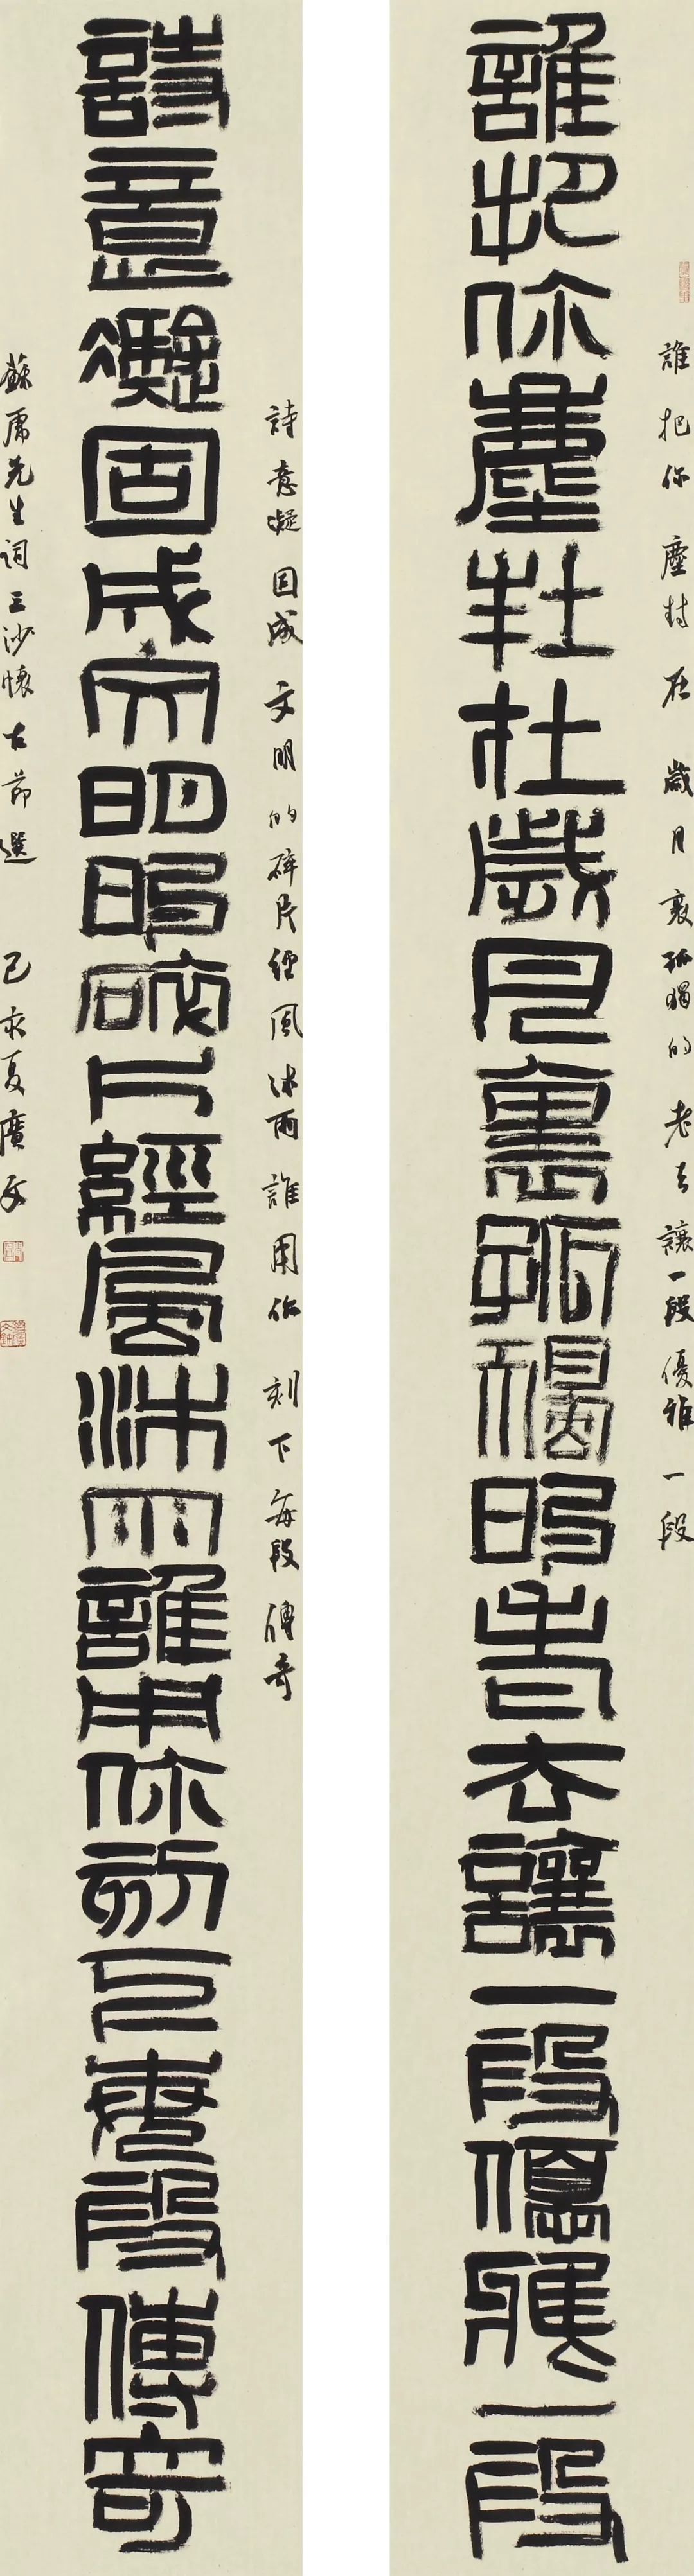 誰把你塵封在歲月裏孤獨的老去讓一段優雅一段
誰把你塵封在歲月裏孤獨的老去讓一段優雅一段
詩意凝固成文明的碎片經風沐雨誰用你刻下每段傳奇
詩意凝固成文明的碎片經風沐雨誰用你刻下每段傳奇
蘇先生詞三沙懷古節選 己亥夏廣文